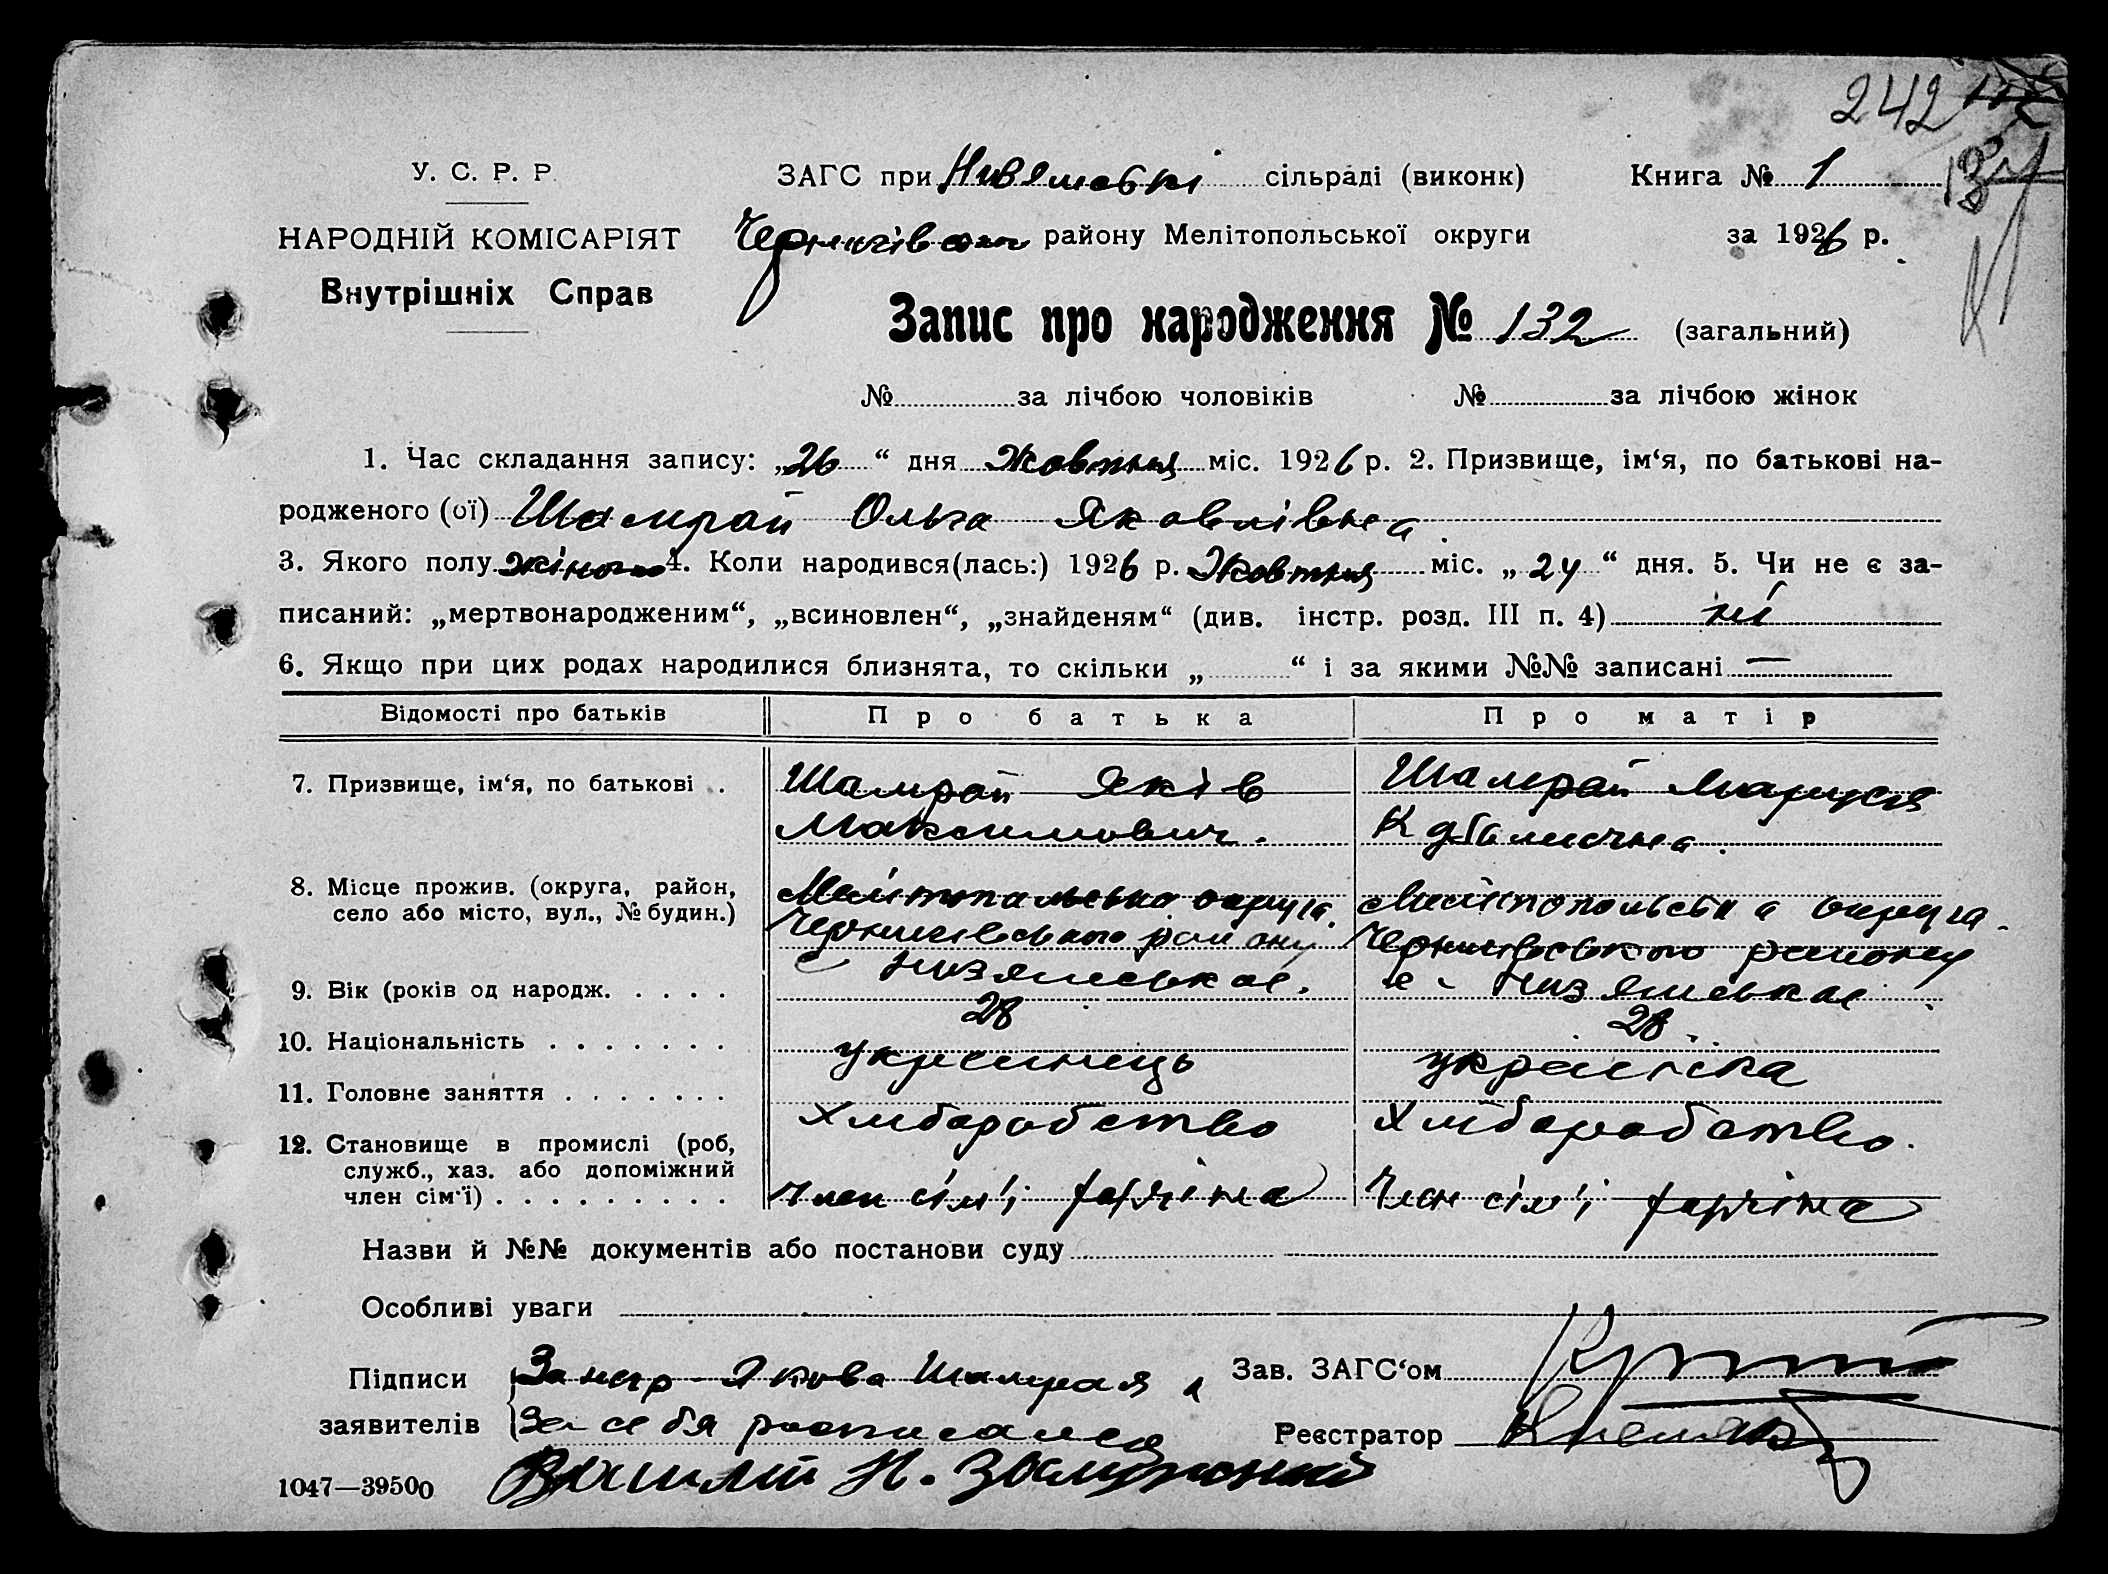 242
У. С. Р. Р.
ЗАГС при сільраді (виконк)
Книга № 1
НАРОДНІЙ КОМІСАРІЯТ
району Мелітопольської округи
за 1926 р.
Внутрішніх Справ
Запис про народження № 132 (загальний)
№ за лічбою чоловіків № за лічбою жінок
1. Час складання запису: „26“ дня Жовтня міс. 1926 р. 2. Призвище, ім‘я, по батькові на-
родженого (ої) Шамрай Ольга Яковлівна
3. Якого полу жіного 4. Коли народився(лась:) 1926 р. Жовтня міс. „24“ дня. 5. Чи не є за-
писаний: „мертвонародженим“, „всиновлен“, „знайденям“ (див. інстр. розд. III п. 4) ні
6. Якщо при цих родах народилися близнята, то скільки „ “ і за якими №№ записані —
Відомості про батьків Про батька Про матір
7. Призвище, ім‘я, по батькові . Шамрай Яків Шамрай Маруся
Максимович.
8. Місце прожив. (округа, район, Мелітопольська округа. Мелітопольська округа.
село або місто, вул., № будин.) Чернигівського району Чернигівського району
9. Вік (років од народж. . . . .
с Низянське. с Низянське
28 28
10. Національність . . . . . . . українець українка
11. Головне заняття . . . . . . . Хліборобство Хліборобство.
12. Становище в промислі (роб,
служб., хаз. або допоміжний
член сім‘ї) . . . . . . . . . Член сім'ї Член сім'ї
Назви й №№ документів або постанови суду
Особливі уваги
Підписи За негр Якова Шамрая и Зав. ЗАГС‘ом
заявителів За себя росписался Реєстратор
1047—39500 Василий Н.